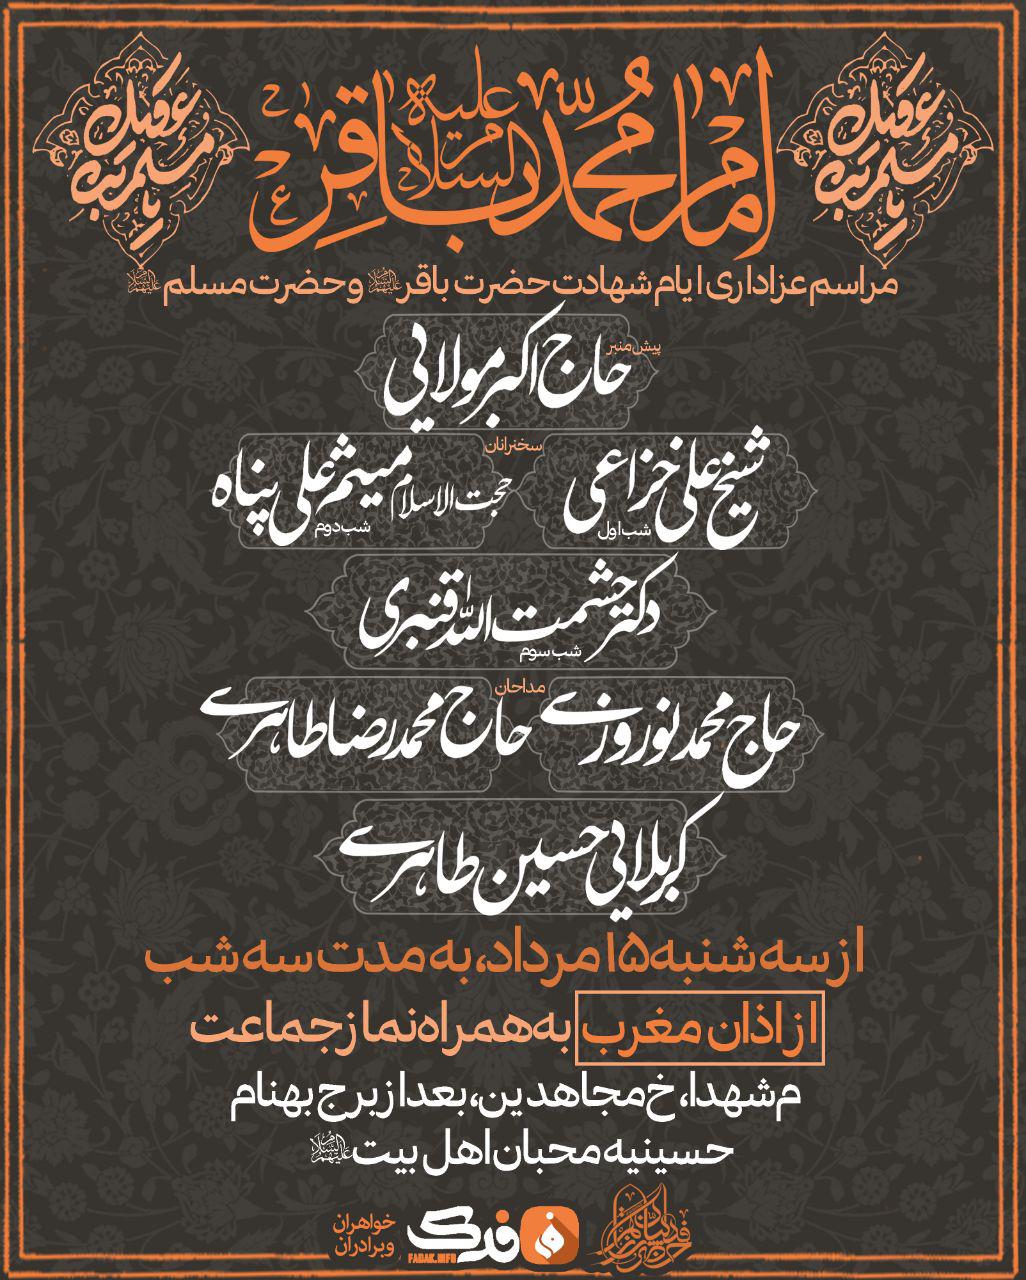 امام محمد باقر علیه السلام
مراسم عزاداری ایام شهادت حضرت باقر علیه السلام و حضرت مسلم علیه السلام
پیش منبر
حاج اکبر مولایی
سخنرانان
شیخ علی خزاعی
شب اول
حجت الاسلام میثم علی پناه
شب دوم
دکتر حشمت الله قنبری
شب سوم
مداحان
حاج محمد نوروزی
حاج محمدرضا طاهری
کربلایی حسین طاهری
از سه شنبه ۱۵ مرداد، به مدت سه شب
از اذان مغرب به همراه نماز جماعت
م شهدا، خ مجاهدین، بعد از برج بهنام
حسینیه محبان اهل بیت علیهم السلام
فدک
FADAK.INFO
خواهران
و برادران